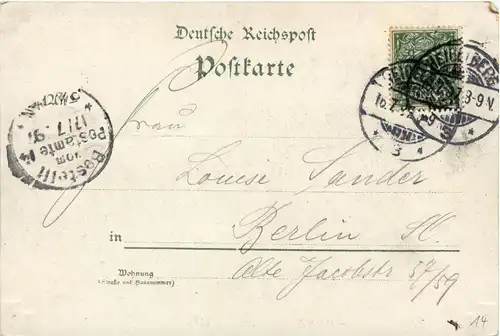 Deutsche Reichspost
Postkarte
HEIDELBERG
8-9 N.
* 3 *
Bestellt
vom
Postamte 14
17/7. 9
Frau
Louise Sander
in Berlin SO.
Alte Jacobstr 57/59
Wohnung
(Straße und Hausnummer)
14